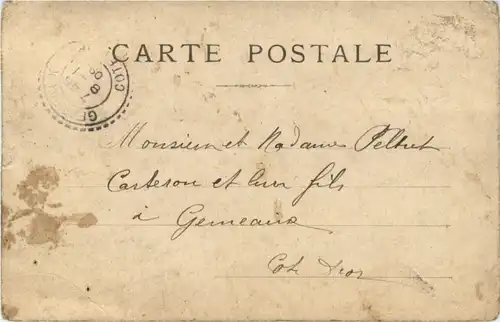 CARTE POSTALE
COTE
GE
Monsieur et Madame Peltret
Carteson et leur fils
à Gemeaux
Cote d'or